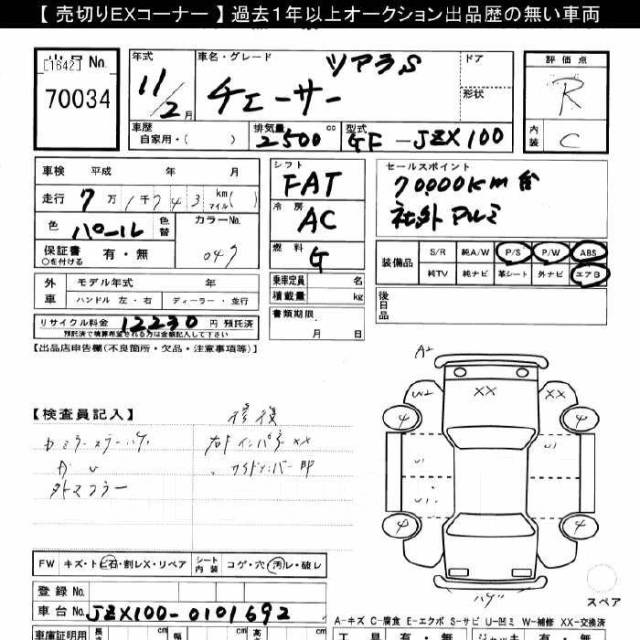 【 売切りEXコーナー 】 過去1年以上オークション出品歴の無い車両
[1642] No.
70034
年式
11/2 月
車名・グレード
ツアラS
チェーサー
ドア
形状
評価点
R
内装
C
車歴
自家用・( )
排気量
2500 cc
型式
GF-JZX100
車検 平成 年 月
走行 7万1千743 km マイル( )
色 パール 色替
カラーNo.
047
保証書 有・無
○を付ける
シフト
FAT
冷房
AC
燃料
G
セールスポイント
70000Km台
社外アルミ
装備品
S/R 純A/W P/S P/W ABS
純TV 純ナビ 革シート 外ナビ エアB
外車
モデル年式 年
ハンドル 左・右 ディーラー・並行
乗車定員 名
積載量 kg
後日品
リサイクル料金 12230 円 預託済
預託済で積算希望される方は金額記入して下さい
書類期限
月 日
【出品店申告欄(不良箇所・欠品・注意事項等)】
【検査員記入】
修復
右インパネXX
外マフラー
A2
W2
XX
XX
4
4
U1
U1
U1
4
4
ハゲ
スペア
FW キズ・トビ石・割レX・リペア
シート内装 コゲ・穴・汚レ・破レ
登録No.
車台No. JZX100-0101692
A-キズ C-腐食 E-エクボ S-サビ U-凹ミ W-補修 XX-交換済
車庫証明用 長さ cm 幅 cm 高さ cm
工具 有・無 ジャッキ 有・無